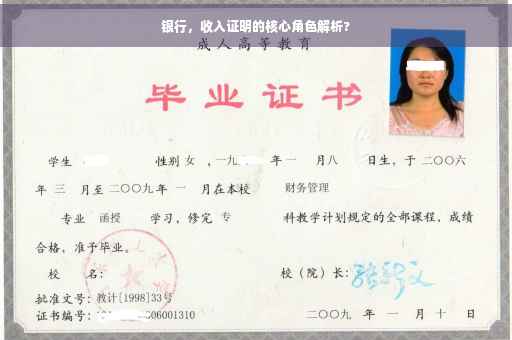 银行，收入证明的核心角色解析？
成人高等教育
毕业证书
学生 性别 女 ，一九 年 一 月 八 日生，于 二〇〇六
年 三 月至 二〇〇九 年 一 月在本校 财务管理
专业 函授 学习，修完 专 科教学计划规定的全部课程，成绩
合格，准予毕业。
校 名： 校（院）长：
批准文号：教计[1998]33号
证书编号： 06001310 二〇〇九 年 一 月 十 日